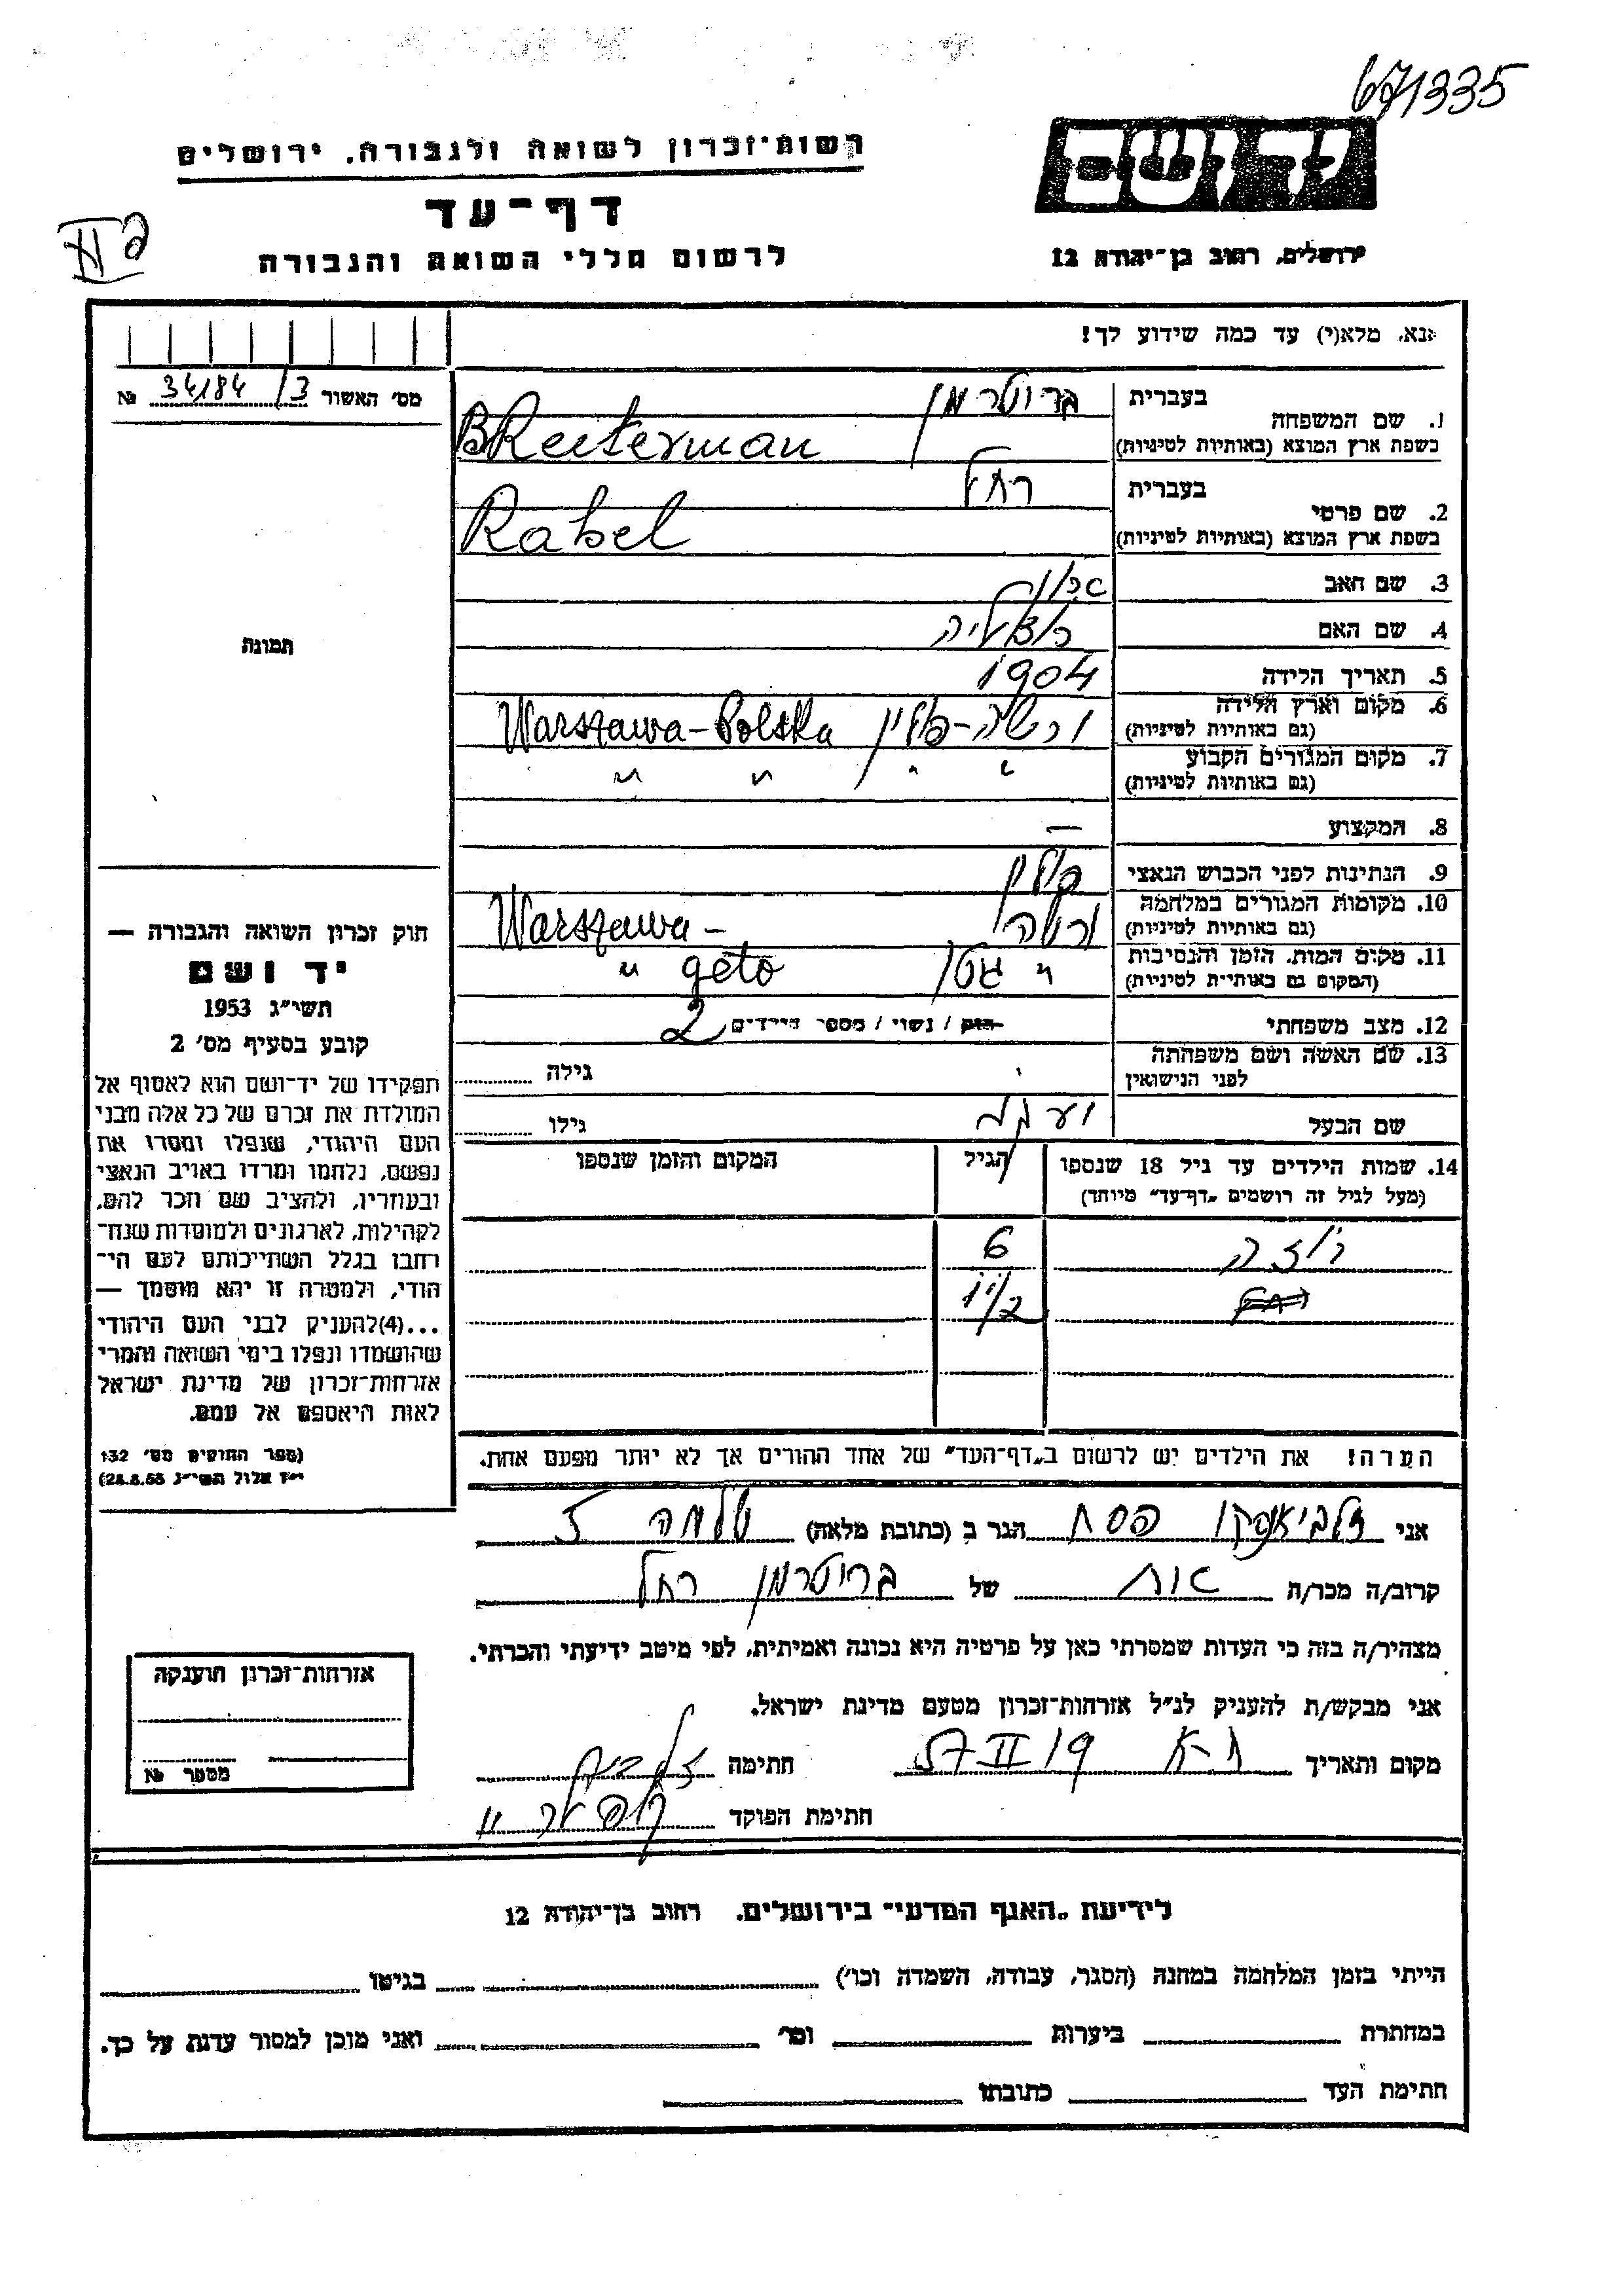 671335
רשות־זכרון לשואה ולגבורה. ירושלים
יד ושם
דף־עד
לרשום חללי השואה והגבורה
ירושלים, רחוב בן־יהודה 12
נא, מלא(י) עד כמה שידוע לך!
מס׳ האשור 34184/3 №
1. שם המשפחה
בעברית ברוטרמן
בשפת ארץ המוצא (באותיות לטיניות) BReuterman
2. שם פרטי
בעברית רחל
בשפת ארץ המוצא (באותיות לטיניות) Rahel
3. שם האב
4. שם האם
5. תאריך הלידה 1904
6. מקום וארץ הלידה ורשה-פולין Warszawa-Polska
(גם באותיות לטיניות)
7. מקום המגורים הקבוע " " " "
(גם באותיות לטיניות)
8. המקצוע —
9. הנתינות לפני הכבוש הנאצי פולין
10. מקומות המגורים במלחמה ורשה Warszawa-
(גם באותיות לטיניות)
11. מקום המות, הזמן והנסיבות " גטו " geto
(המקום גם באותיות לטיניות)
12. מצב משפחתי רוק / נשוי / מספר הילדים 2
13. שם האשה ושם משפחתה
לפני הנישואין
גילה
שם הבעל
גילו
14. שמות הילדים עד גיל 18 שנספו
(מעל לגיל זה רושמים „דף־עד״ מיוחד)
הגיל
המקום והזמן שנספו
רוזה 6
1 1/2
הערה! את הילדים יש לרשום ב„דף־העד״ של אחד ההורים אך לא יותר מפעם אחת.
תמונה
חוק זכרון השואה והגבורה —
יד ושם
תשי״ג 1953
קובע בסעיף מס׳ 2
תפקידו של יד־ושם הוא לאסוף אל
המולדת את זכרם של כל אלה מבני
העם היהודי, שנפלו ומסרו את
נפשם, נלחמו ומרדו באויב הנאצי
ובעוזריו, ולהציב שם וזכר להם,
לקהילות, לארגונים ולמוסדות שנח־
רבו בגלל השתייכותם לעם הי־
הודי, ולמטרה זו יהא מוסמך —
...(4)להעניק לבני העם היהודי
שהושמדו ונפלו בימי השואה והמרי
אזרחות־זכרון של מדינת ישראל
לאות היאספם אל עמם.
(ספר החוקים מס׳ 132
י״ז אלול תשי״ג 28.8.53)
אני זלביאנסקי פסח הגר ב (כתובת מלאה) שלמה 5
קרוב/ה מכר/ה אח של ברוטרמן רחל
מצהיר/ה בזה כי העדות שמסרתי כאן על פרטיה היא נכונה ואמיתית, לפי מיטב ידיעתי והכרתי.
אני מבקש/ת להעניק לנ״ל אזרחות־זכרון מטעם מדינת ישראל.
מקום ותאריך ת-א 19 II 57 חתימה
חתימת הפוקד
אזרחות־זכרון הוענקה
מספר №
לידיעת „האגף המדעי״ בירושלים. רחוב בן־יהודה 12
הייתי בזמן המלחמה במחנה (הסגר, עבודה, השמדה וכו׳) בגיטו
במחתרת ביערות וכו׳ ואני מוכן למסור עדות על כך.
חתימת העד כתובתו